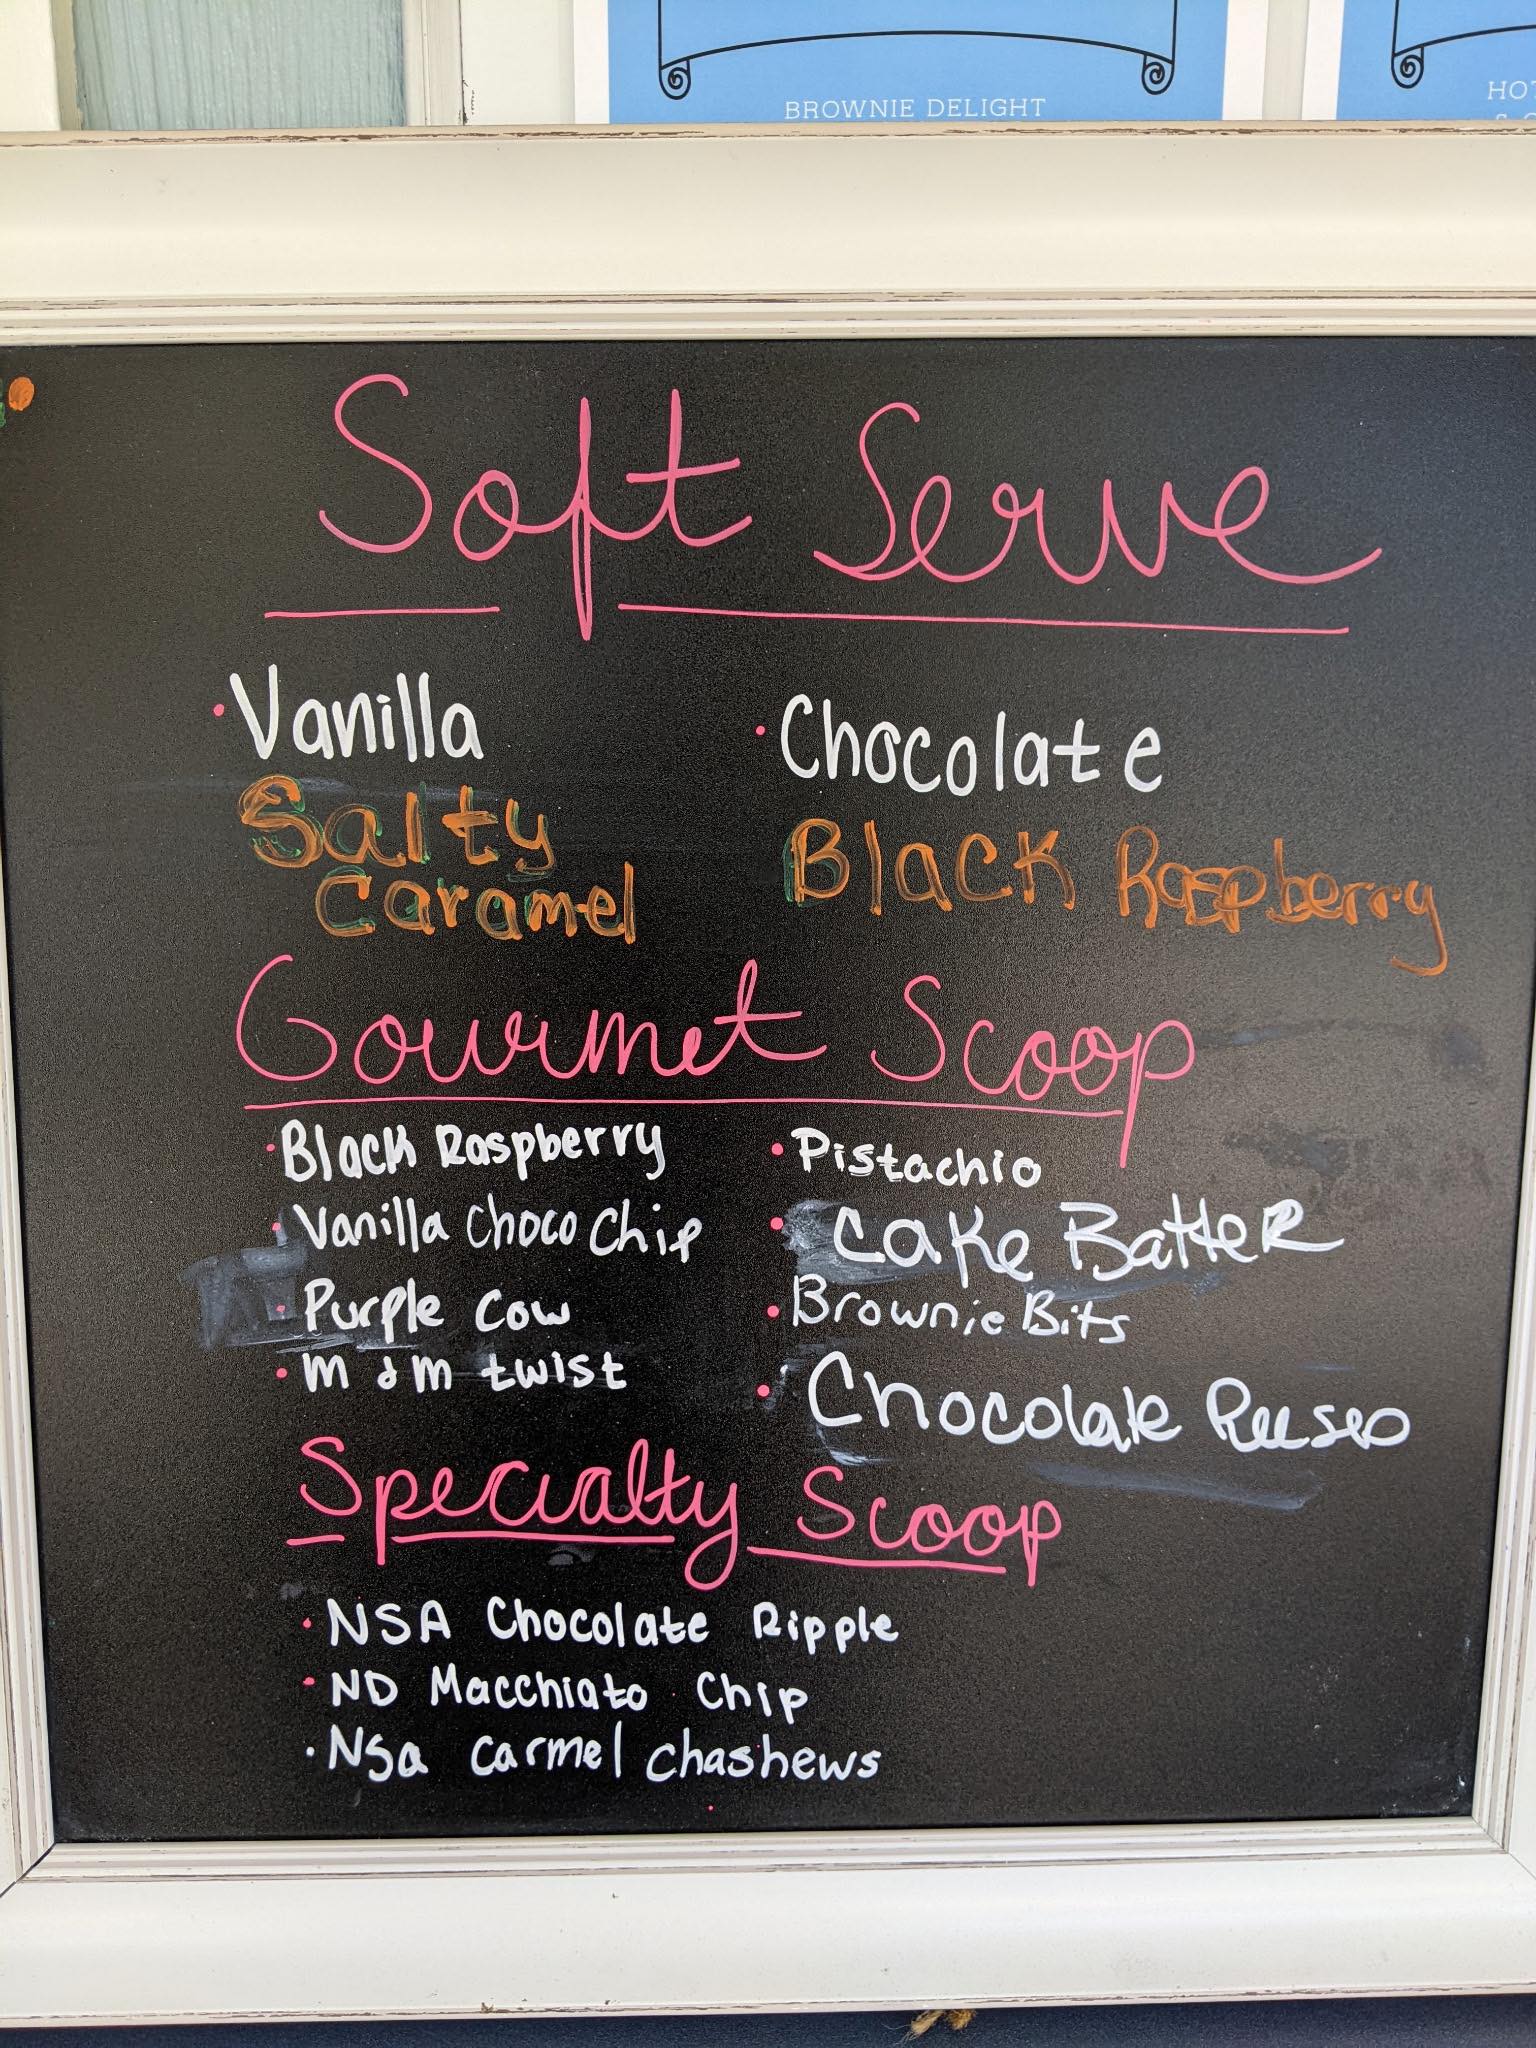 BROWNIE DELIGHT
HOT
Soft Serve
Vanilla
Chocolate
Salty
Caramel
Black Raspberry
Gourmet Scoop
Black Raspberry
Vanilla Choco Chip
Purple Cow
M & M twist
Pistachio
Cake Batter
Brownie Bits
Chocolate Reeses
Specialty Scoop
NSA Chocolate Ripple
ND Macchiato Chip
NSa Carmel Chashews